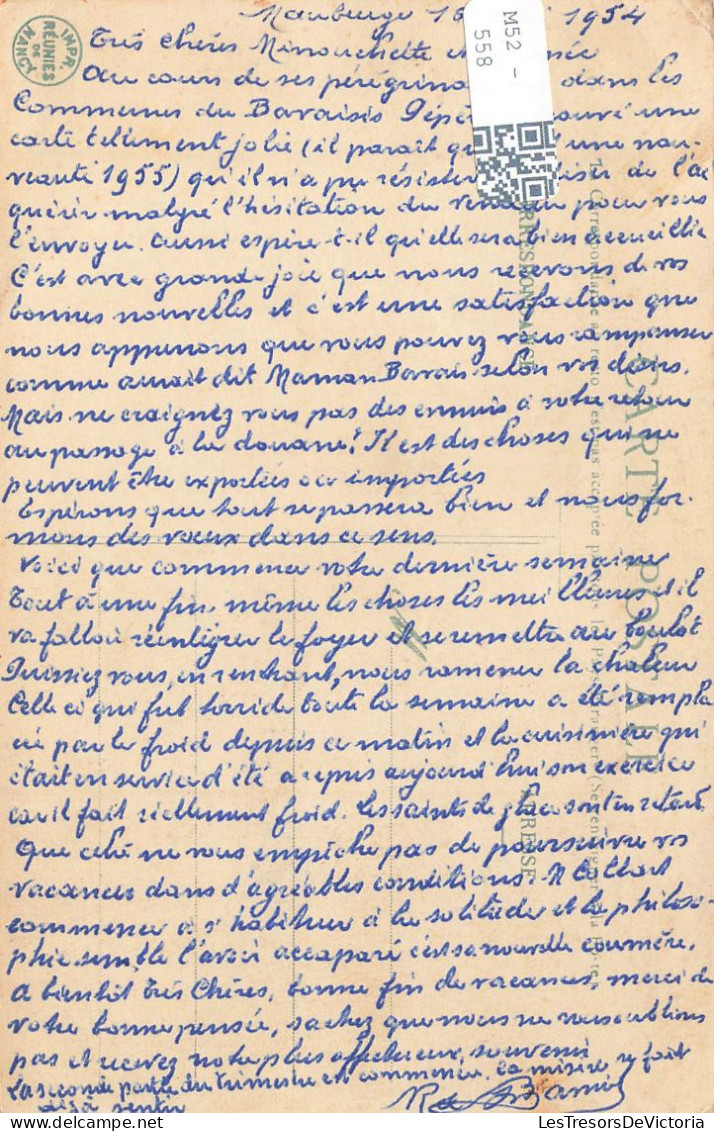 Maubeuge 16 1954
Très chères Minouchette
Au cours de ses pérégrina dans les
Communes du Bavaisis Pépé ouvé une
carte tellement jolie (il parait qu une nou-
veauté 1955) qu'il n'a pu résister de l'ac
quérir malgré l'hésitation du vendeur pour vous
l'envoyer. Aussi espère-t-il qu'elle sera bien accueillie
C'est avec grande joie que nous recevons de vos
bonnes nouvelles et c'est une satisfaction que
nous apprenons que vous pouvez vous
comme aurait dit Maman Bavais selon vos désirs.
Mais ne craignez vous pas des ennuis à votre retour
au passage à la douane? Il est des choses qui ne
peuvent être exportées ou importées
Espérons que tout se passera bien et nous for-
mons des vœux dans ce sens.
Voici que commence votre dernière semaine
Tout à une fin, même les choses les meilleures et il
va falloir réintégrer le foyer et se remettre au boulot
Puissiez vous, en rentrant, nous ramener la chaleur
Celle ci qui fut torride toute la semaine a été rempla
cée par le froid depuis ce matin et la cuisinière qui
était en service d'été a repris aujourd'hui son exercice
car il fait réellement froid. Les saints de glace sont en retard.
Que cela ne vous empêche pas de poursuivre vos
vacances dans d'agréables conditions.
commence à s'habituer à la solitude et la philoso-
phie semble l'avoir accaparé c'est sa nouvelle commère.
A bientôt très Chères, bonne fin de vacances, merci de
votre bonne pensée, sachez que nous ne vous oublions
pas et recevez notre plus affectueux souvenir
La seconde partie du trimestre est commencée la misère se fait
déjà sentir
M52 -
558
IMPR.
RÉUNIES
DE
NANCY
CARTE POSTALE
ADRESSE